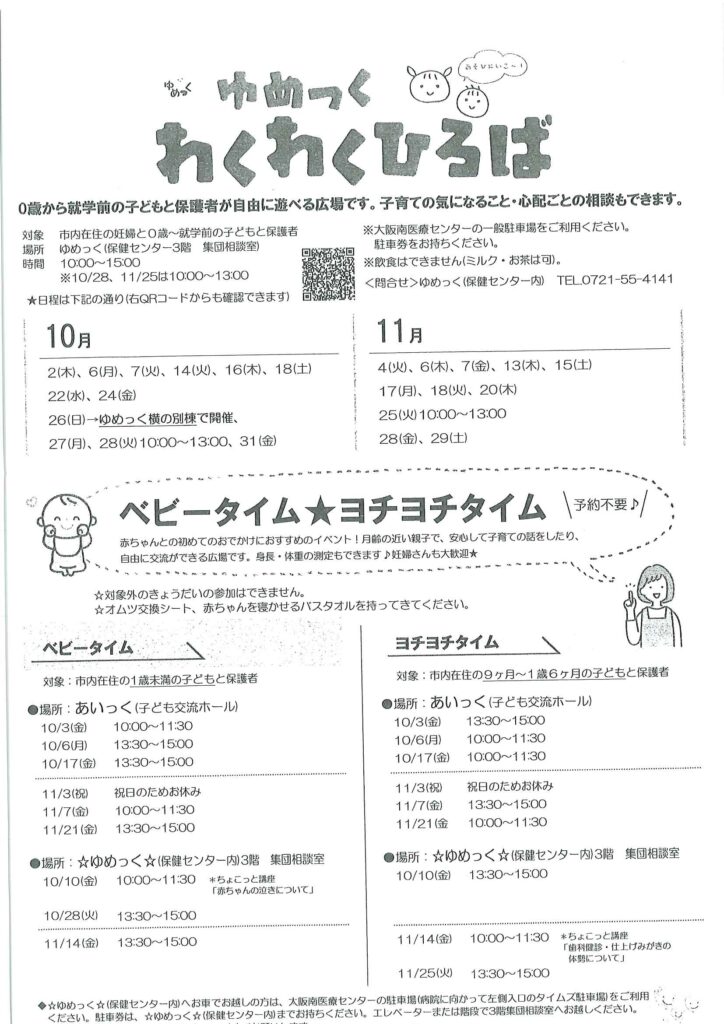 ゆめっく
あそびにいこ〜!
ゆめっく
わくわくひろば
0歳から就学前の子どもと保護者が自由に遊べる広場です。子育ての気になること・心配ごとの相談もできます。
対象 市内在住の妊婦と0歳～就学前の子どもと保護者
場所 ゆめっく(保健センター3階 集団相談室)
時間 10:00～15:00
※10/28、11/25は10:00～13:00
★日程は下記の通り(右QRコードからも確認できます)
※大阪南医療センターの一般駐車場をご利用ください。
駐車券をお持ちください。
※飲食はできません(ミルク・お茶は可)。
<問合せ>ゆめっく(保健センター内) TEL.0721-55-4141
10月
2(木)、6(月)、7(火)、14(火)、16(木)、18(土)
22(水)、24(金)
26(日)→ゆめっく横の別棟で開催、
27(月)、28(火)10:00～13:00、31(金)
11月
4(火)、6(木)、7(金)、13(木)、15(土)
17(月)、18(火)、20(木)
25(火)10:00～13:00
28(金)、29(土)
ベビータイム★ヨチヨチタイム
\予約不要♪/
赤ちゃんとの初めてのおでかけにおすすめのイベント!月齢の近い親子で、安心して子育ての話をしたり、
自由に交流ができる広場です。身長・体重の測定もできます♪妊婦さんも大歓迎★
☆対象外のきょうだいの参加はできません。
☆オムツ交換シート、赤ちゃんを寝かせるバスタオルを持ってきてください。
ベビータイム
対象:市内在住の1歳未満の子どもと保護者
●場所:あいっく(子ども交流ホール)
10/3(金) 10:00～11:30
10/6(月) 13:30～15:00
10/17(金) 13:30～15:00
11/3(祝) 祝日のためお休み
11/7(金) 10:00～11:30
11/21(金) 13:30～15:00
●場所:☆ゆめっく☆(保健センター内)3階 集団相談室
10/10(金) 10:00～11:30 *ちょこっと講座
「赤ちゃんの泣きについて」
10/28(火) 13:30～15:00
11/14(金) 13:30～15:00
ヨチヨチタイム
対象:市内在住の9ヶ月～1歳6ヶ月の子どもと保護者
●場所:あいっく(子ども交流ホール)
10/3(金) 13:30～15:00
10/6(月) 10:00～11:30
10/17(金) 10:00～11:30
11/3(祝) 祝日のためお休み
11/7(金) 13:30～15:00
11/21(金 10:00～11:30
●場所:☆ゆめっく☆(保健センター内)3階 集団相談室
10/10(金) 13:30～15:00
11/14(金) 10:00～11:30 *ちょこっと講座
「歯科健診・仕上げみがきの
体勢について」
11/25(火) 13:30～15:00
◆☆ゆめっく☆(保健センター内)へお車でお越しの方は、大阪南医療センターの駐車場(病院に向かって左側入口のタイムズ駐車場)をご利用
ください。駐車券は、☆ゆめっく☆(保健センター内)までお持ちください。エレベーターまたは階段で3階集団相談室へお越しください。